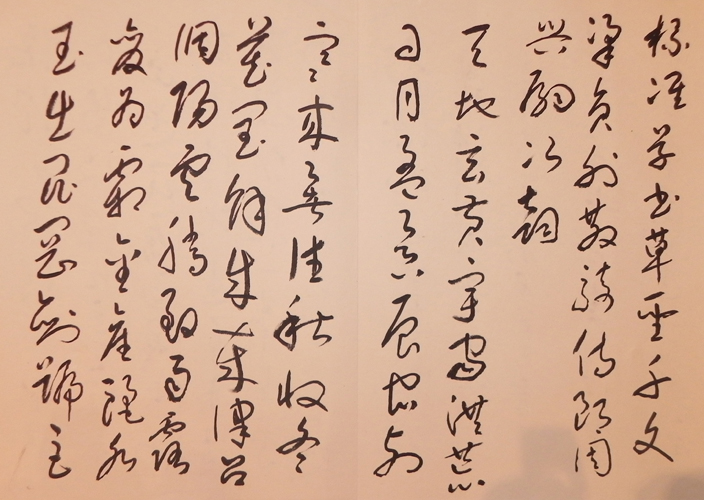 標準學書草聖千文
梁員外散騎侍郎周
興嗣次韻
天地玄黃宇宙洪荒
日月盈昃辰宿列
寒來暑往秋收冬
藏閏餘成歲律呂
調陽雲騰致雨露
為霜金麗水
玉出崑岡劍號巨